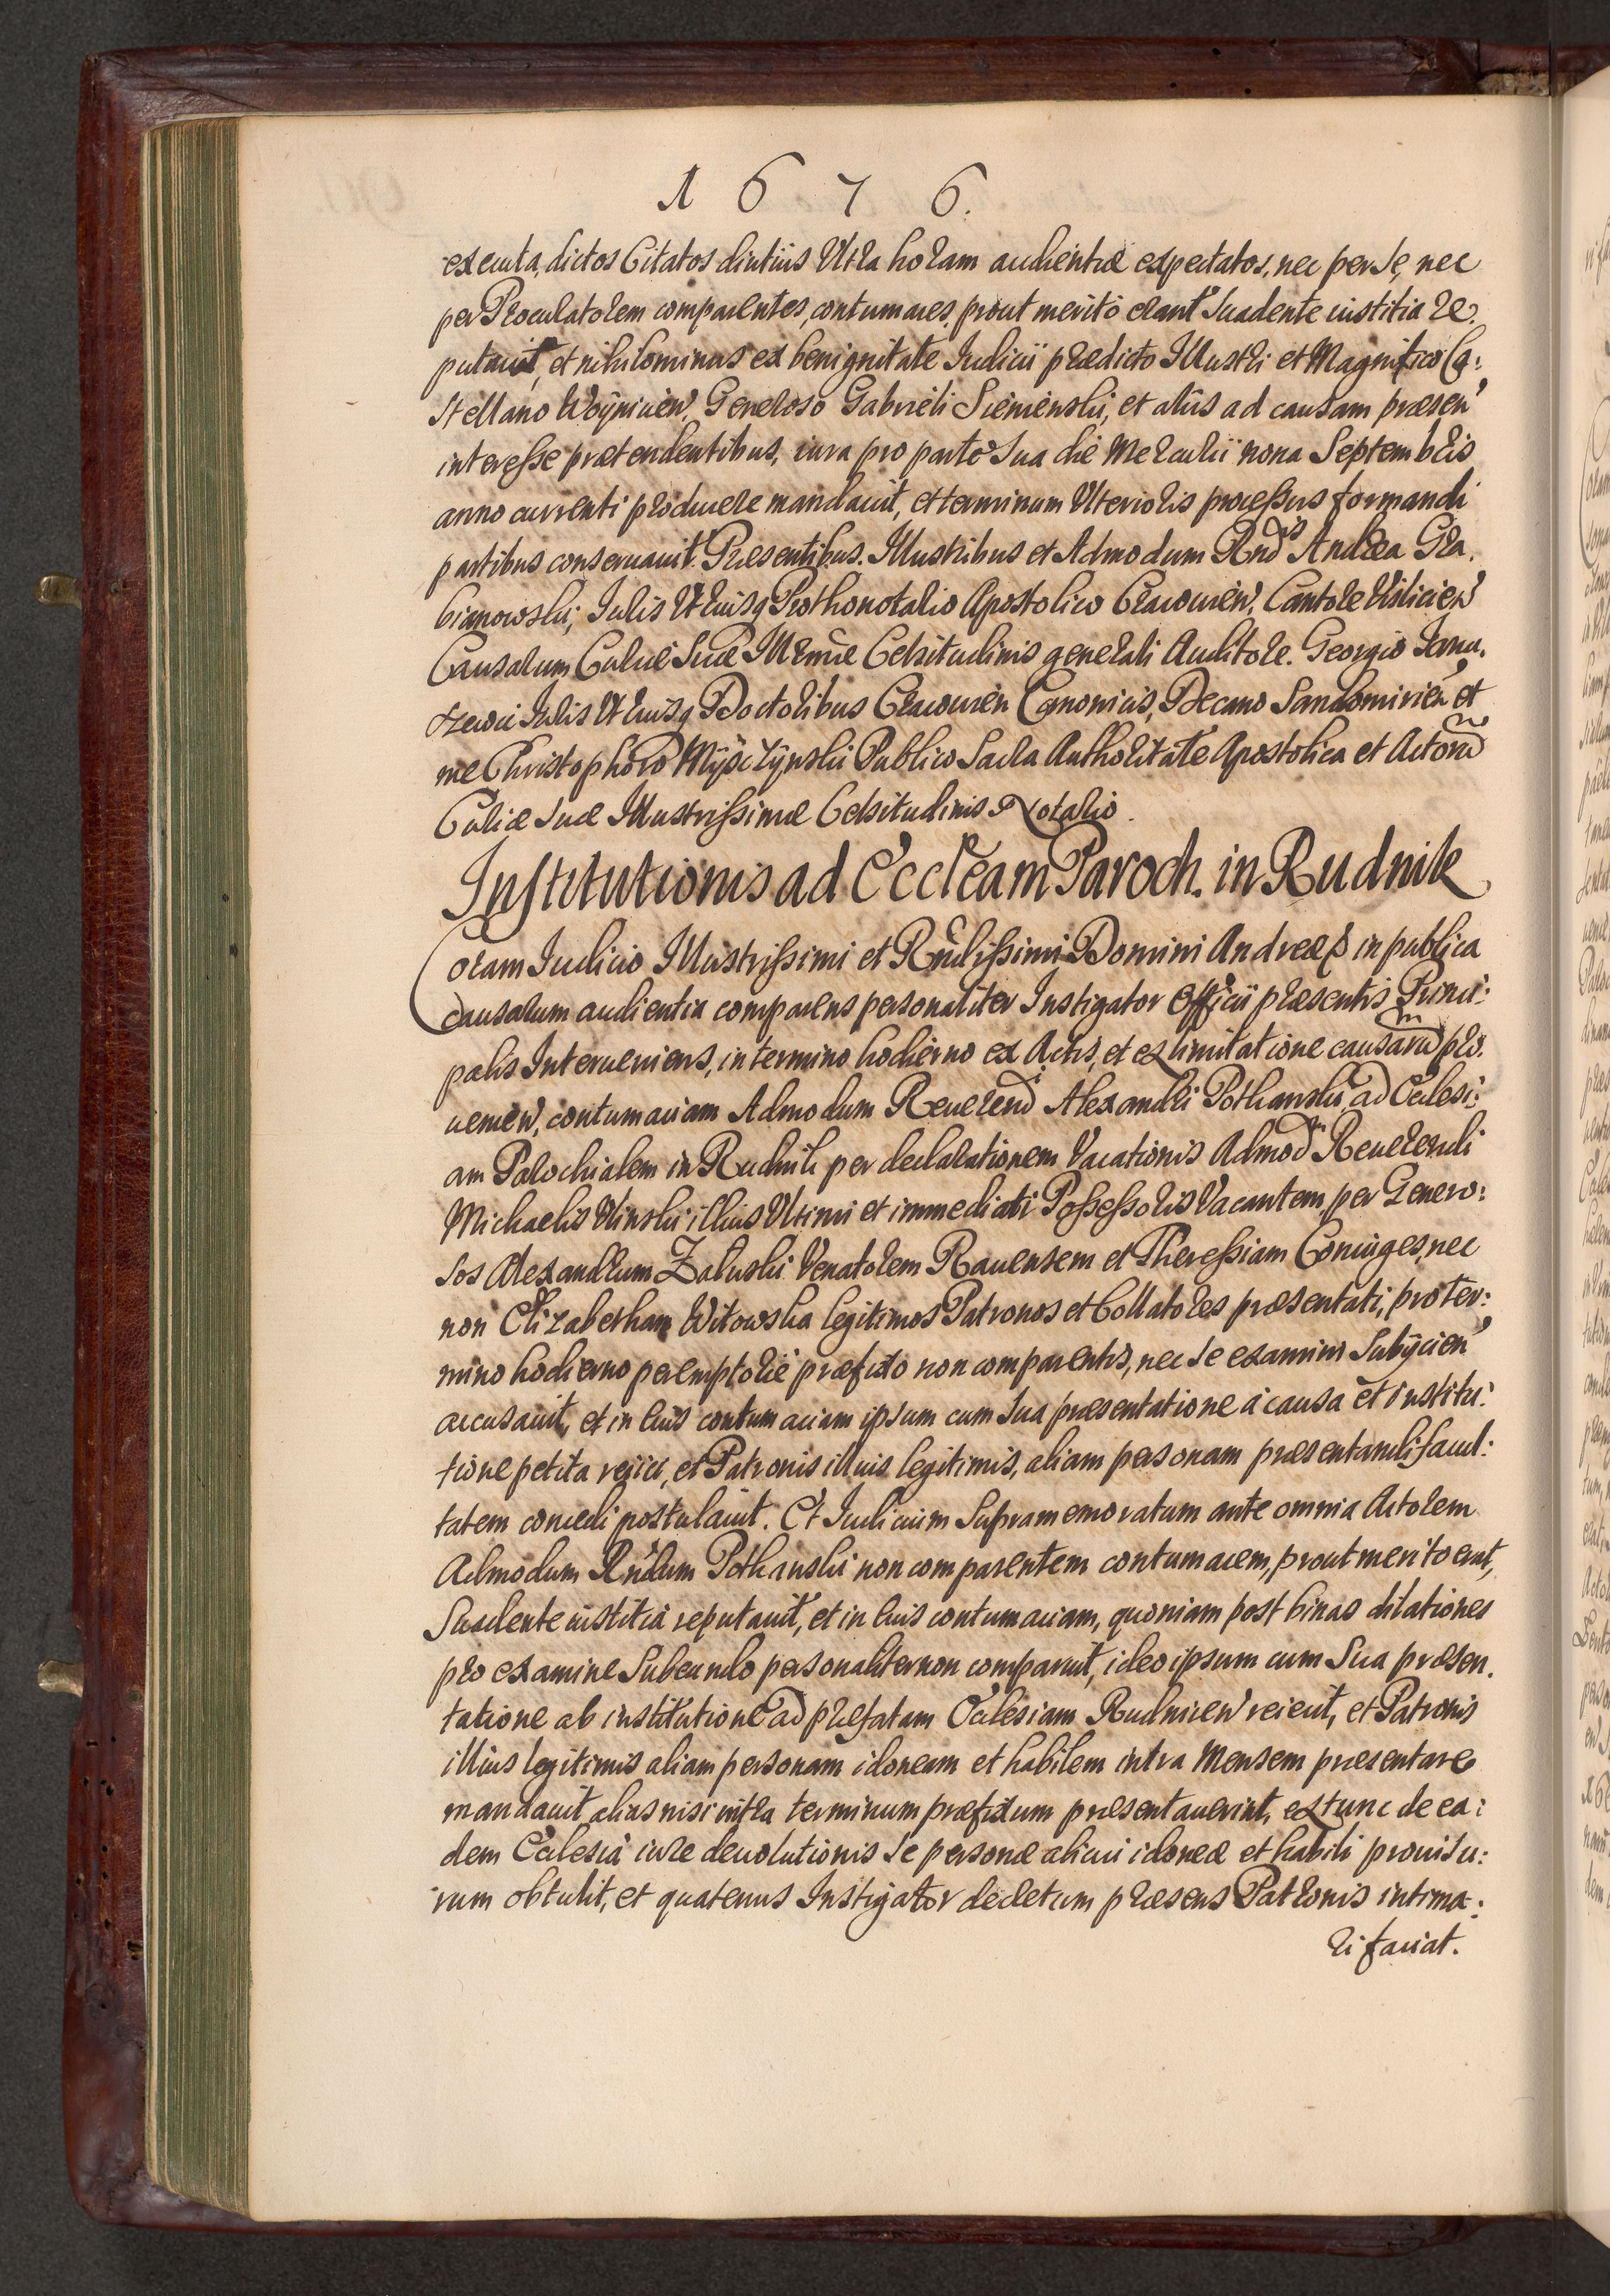 1 6 7 6.
executa, dictos Citatos diutius Ultra horam audientiæ expectatos, nec per se, nec
per Procuratorem comparentes, contumaces, prout merito erant suadente iustitia re.
putauit, et nihilominus ex benignitate Iudicii prædicto Illustri et Magnifico Ca:
stellano Woÿnicen̄, Generoso Gabrieli Siemienski, et aliis ad causam præsen̄
interesse prætendentibus, iura pro parte sua die Mercurii nona Septembris
anno currenti producere mandauit, et terminum Ulterioris processus formandi
partibus conseruauit. Præsentibus. Illustribus et Admodum Rndis Andrea Gra.
bianowski, Iuris Utriusq Prothonotario Apostolico Cracouien̄, Cantore VisliCien̄
Causarum Curiæ Suæ Illrmæ Celsitudinis generali Auditore. Georgio
Iuris Utriusq Doctoribus Cracouien Canonicis, Decano Sandomirien̄ et
me Christophoro Mÿsczÿnski Publico Sacra Authoritate Apostolica et Actorū
Curiæ suæ Illustrissimæ Celsitudinis Notario.
Institutionis ad Eccleam Paroch. in Rudnik
Coram Iudicio Illustrissimi et Rndissimi Domini Andreæ in publica
causarum audientia comparens personaliter Instigator Officii præsentis Princi:
palis Interueniens, in termino hodierno ex Actis, et ex limitatione causarū pro.
uenien̄, contumaciam Admodum Reuerendi Alexandri Pothanski, ad Eccelesi:
am Parochialem in Rudnik per declarationem Vacationis Admodm Reuerendi
Michaelis Ulinski illius Ultimi et immediati Possessoris Vacantem, per Genero:
sos Alexandrum Zaluski Venatorem Rauensem et Theressiam Coniuges, nec
non Elizabetham Witowska legitimos Patronos et Collatores præsentati, pro ter:
mino hodierno peremptoriè præfixo non comparentis, nec se examini Subÿcien̄
accusauit, et in eius contumaciam ipsum cum sua præsentatione à causa et institu:
tione petita reiici, et Patronis illius legitimis, aliam personam præsentandi facul:
tatem concedi postulauit. Et Iudicium Supramemoratum ante omnia Actorem
Admodum Rndum Pothanski non comparentem contumacem, prout merito erat,
Suadente iustitia reputauit, et in eius contumaciam, quoniam post binas dilationes
pro examine Subeundo personaliter non comparuit, ideo ipsum cum Sua præsen.
tatione ab institutione ad præfatam Ecclesiam Rudnicen̄ reiecit, et Patronis
illius legitimis aliam personam idoneam et habilem intra Mensem præsentare
mandauit, alias nisi intra terminum præfixum præsentauerint, extunc de ea:
dem Ecclesia iure deuolutionis se personæ alicui idoneæ et habili prouisu:
rum obtulit, et quatenus Instigator decretum præsens Patronis intima:
ri faciat.